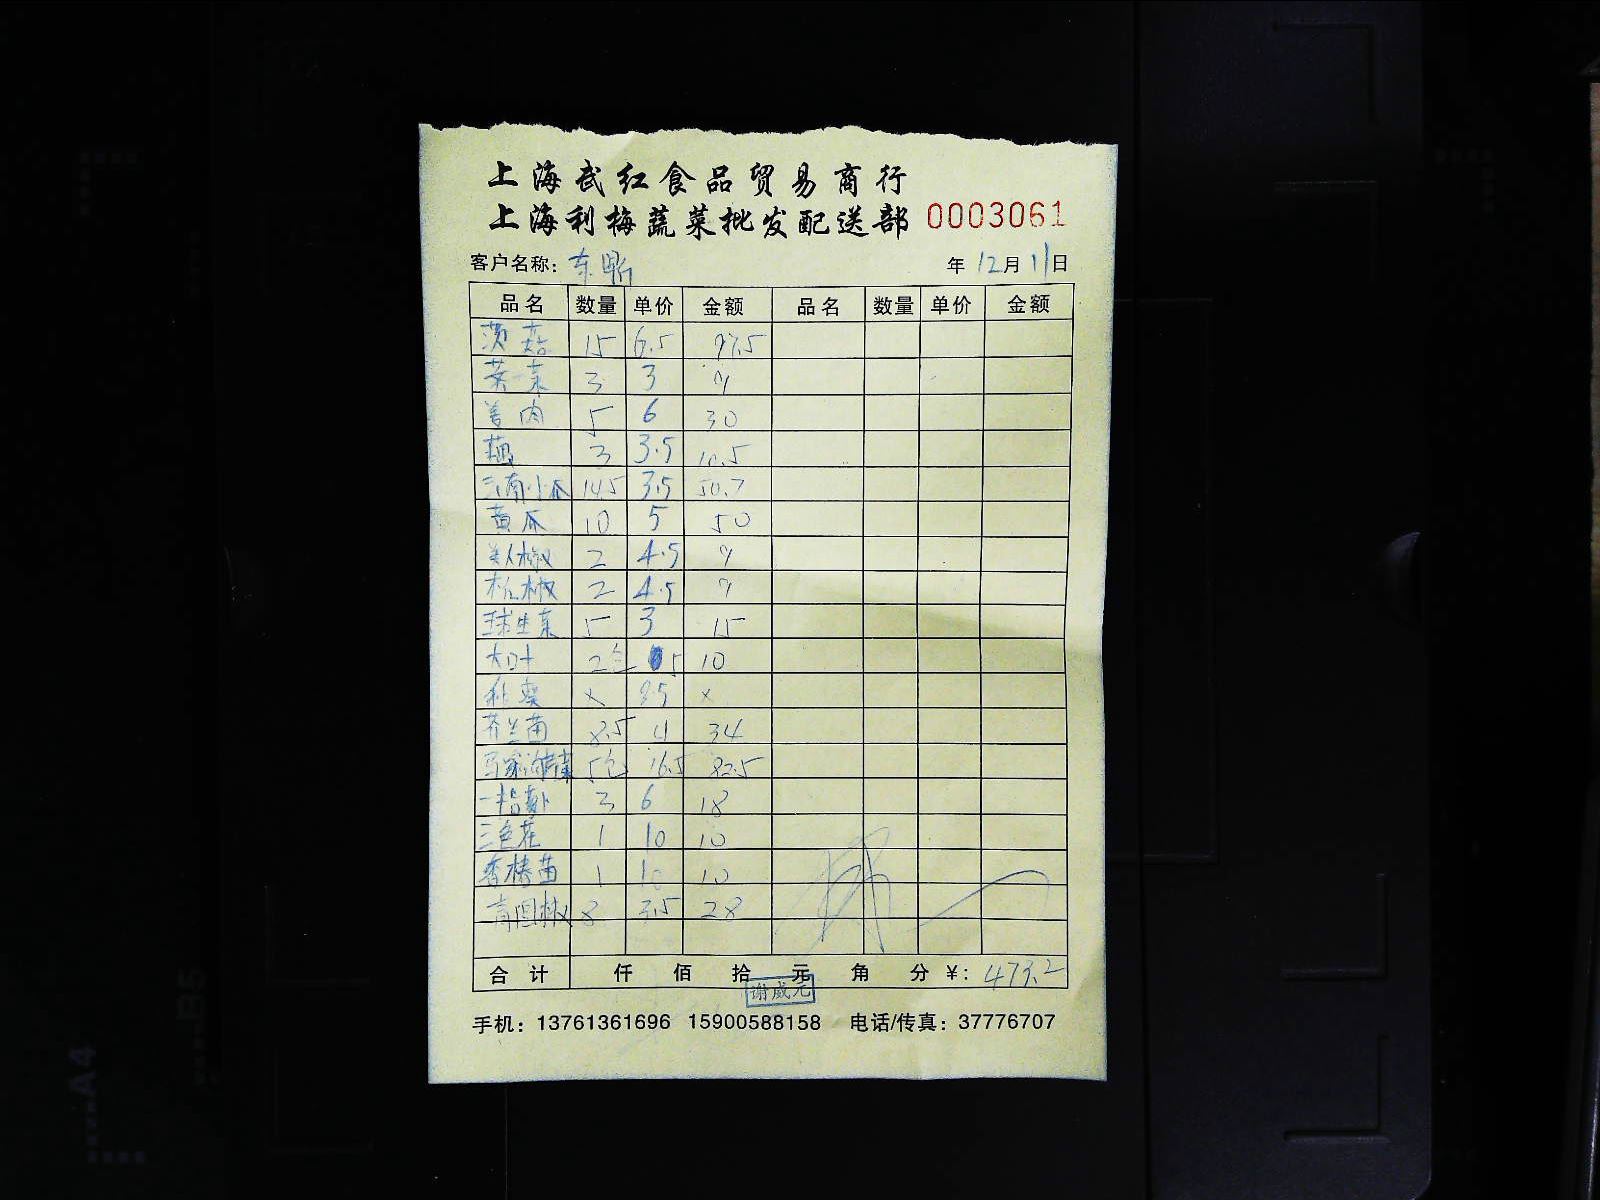 上海武红食品贸易商行
上海利梅蔬菜批发配送部 0003061
客户名称: 年 12月11日
品名 数量 单价 金额 品名 数量 单价 金额
茨菇 15 6.5 97.5
3 3 9
5 6 30
藕 3 3.5 10.5
小瓜 14.5 3.5 50.7
黄瓜 10 5 50
美人椒 2 4.5 9
杭椒 2 4.5 9
球生菜 5 3 15
大叶 2包 5 10
秋葵 x 8.5 x
芥兰苗 8.5 4 34
5包 16.5 82.5
一指 3 6 18
三色花 1 10 10
香椿苗 1 10 10
青圆椒 8 3.5 28
合计 仟 佰 拾 元 角 分 ¥: 473.2
谢威元
手机: 13761361696 15900588158 电话/传真: 37776707